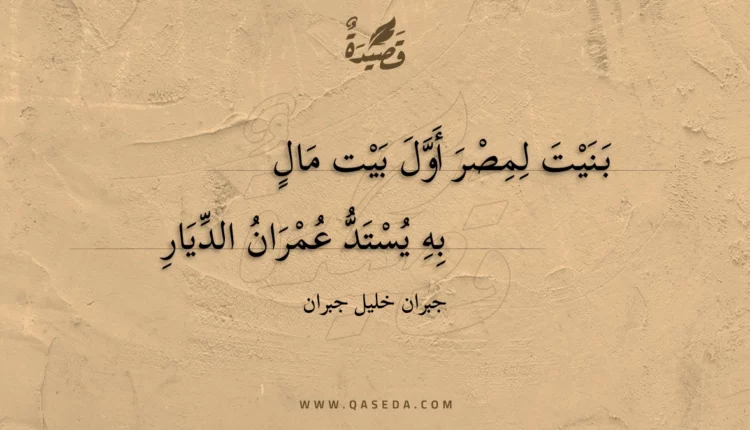 قَصِيْدَةٌ
بَنَيْتَ لِمِصْرَ أَوَّلَ بَيْت مَالٍ
بِهِ يُسْتَدُّ عُمْرَانُ الدِّيَارِ
جبران خليل جبران
WWW.QASEDA.COM